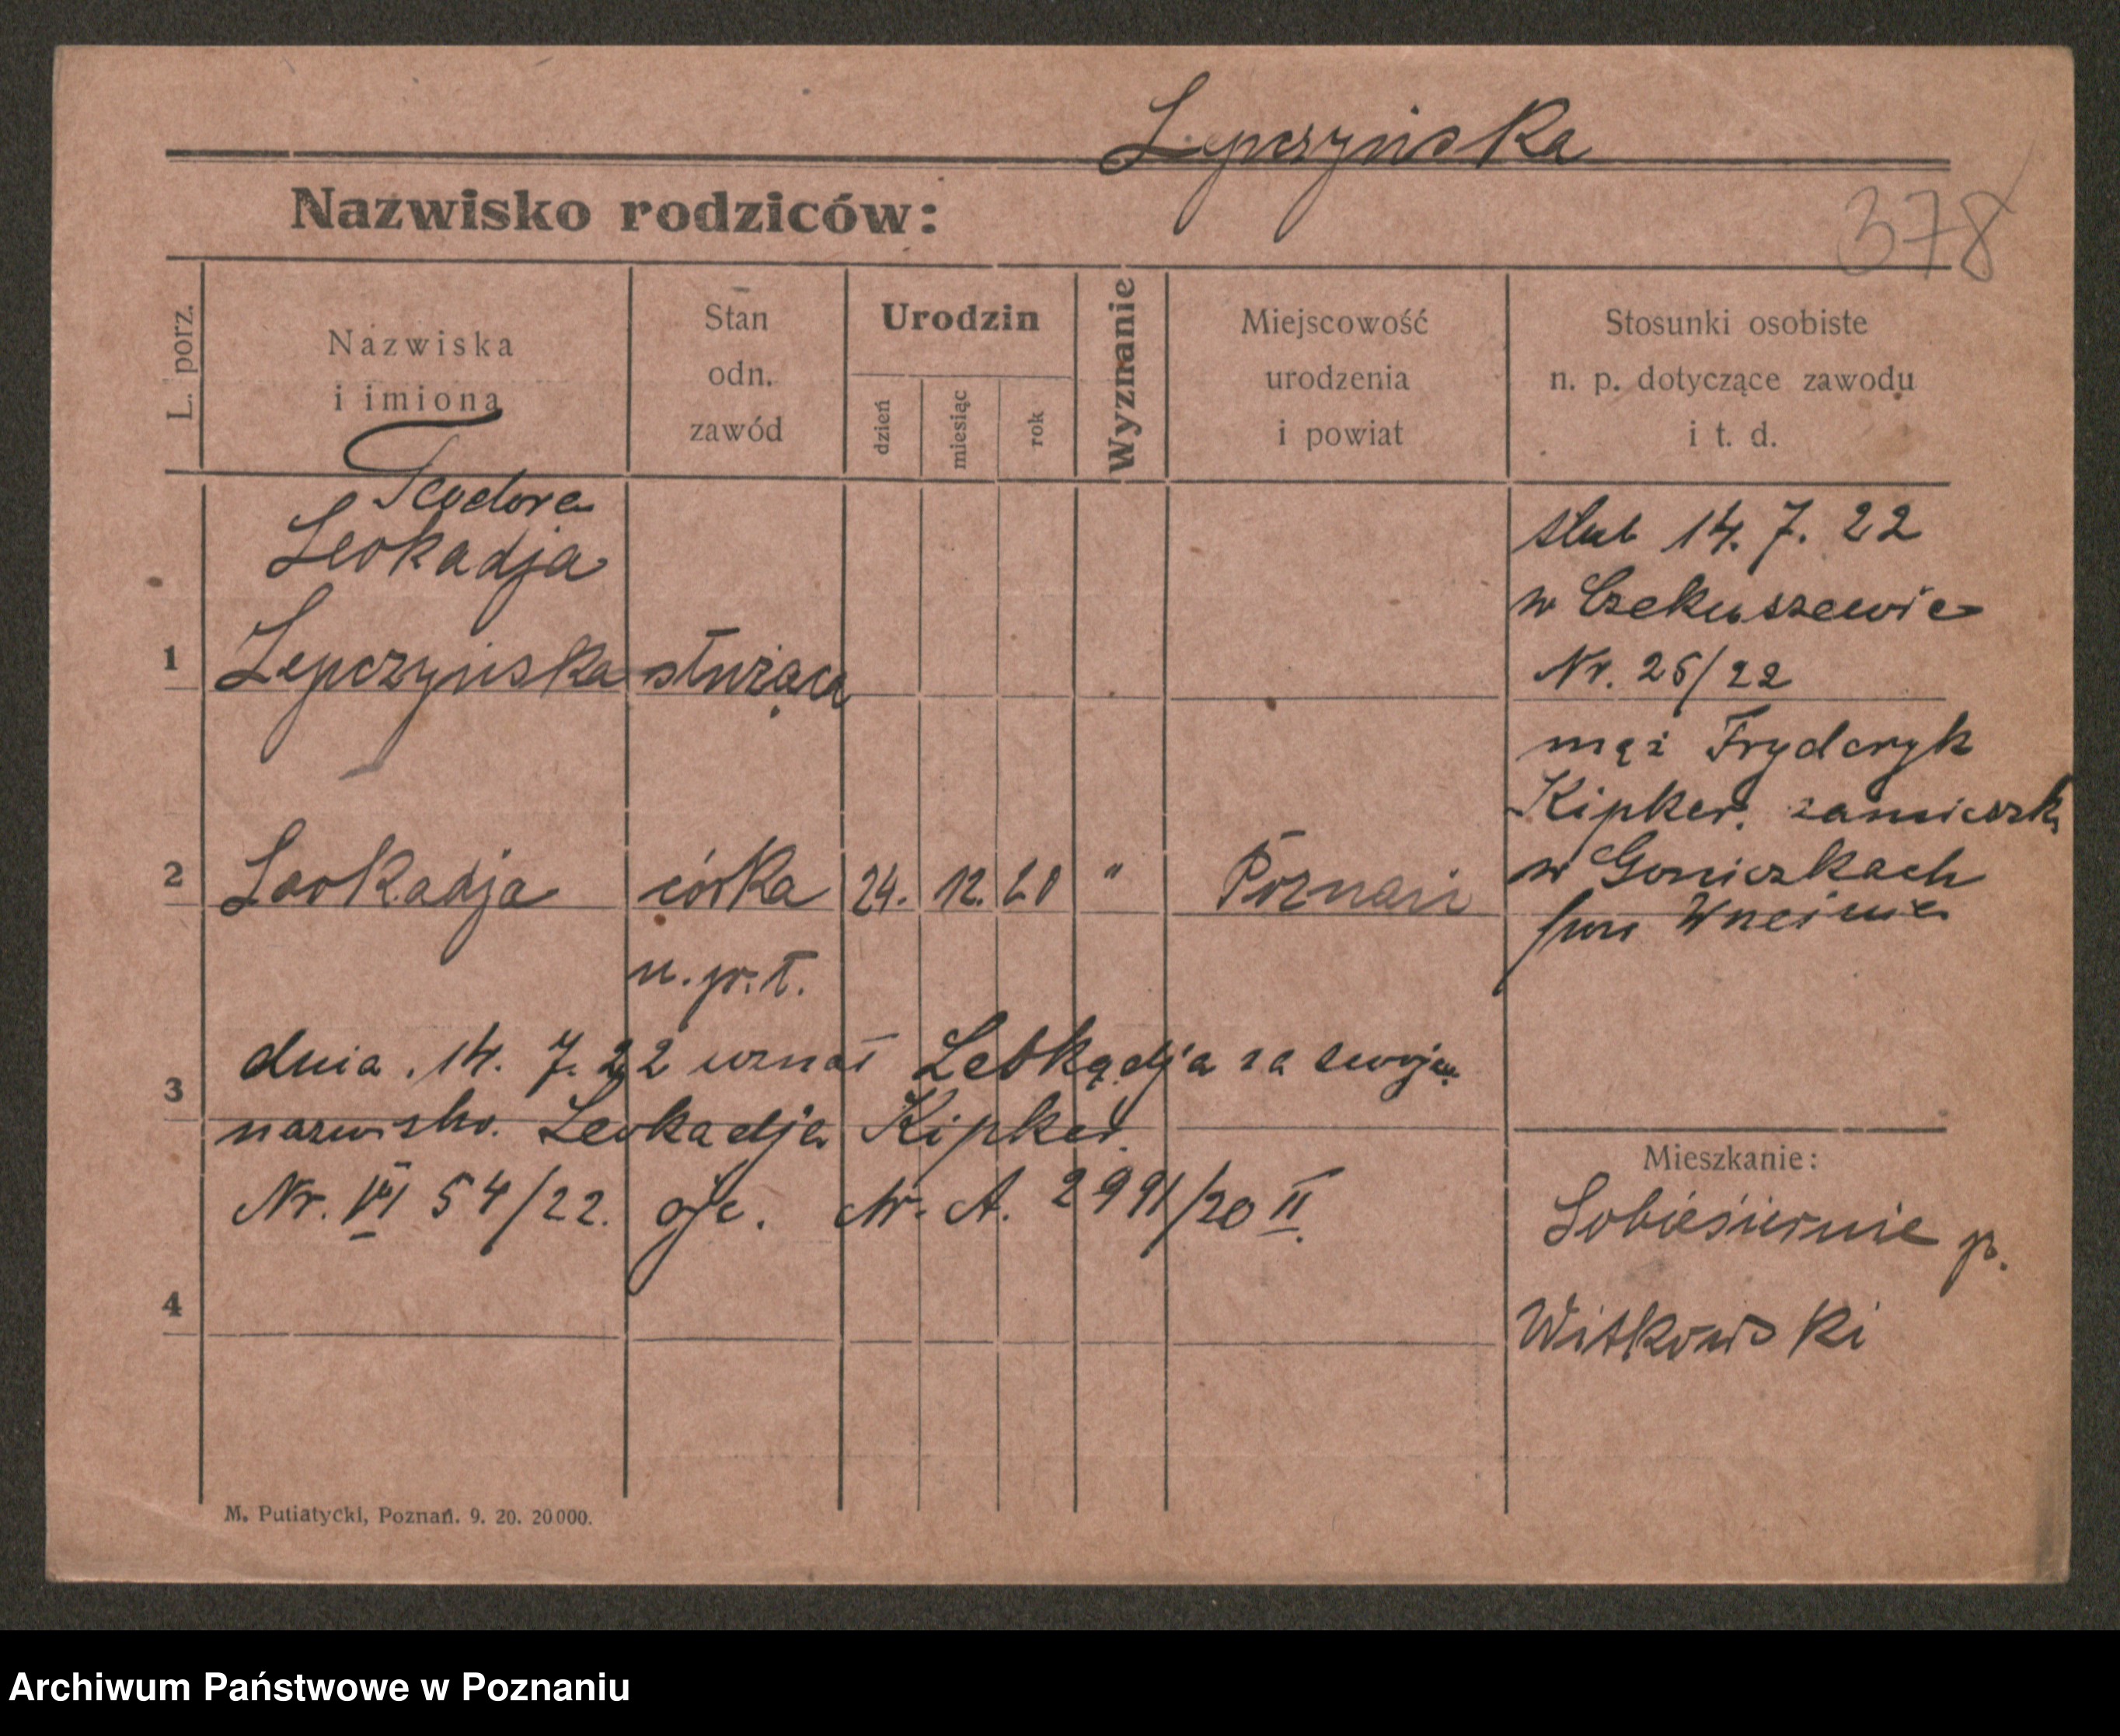 Lepczyńska
Nazwisko rodziców:
378
L. porz.
Nazwiska
i imiona
Stan
odn.
zawód
Urodzin
dzień
miesiąc
rok
Wyznanie
Miejscowość
urodzenia
i powiat
Stosunki osobiste
n. p. dotyczące zawodu
i t. d.
Teodora
Leokadja
1 Lepczyńska służąca
ślub 14. 7. 22
w Czekuszewie
Nr. 25/22
mąż Fryderyk
Kipker. zamieszk.
w Goniczkach
pow Wrześnie
2 Leokadja córka 24. 12. 20 " Poznań
n. pr. ł.
3
dnia. 14. 7. 22 uznał Leokadja za swoją
nazwisko. Leokadja Kipker.
Nr. VII 54/22. Nr. A. 2991/20 II.
4
Mieszkanie:
Sobiesiernie p.
Witkowski
M. Putiatycki, Poznań. 9. 20. 20000.
Archiwum Państwowe w Poznaniu